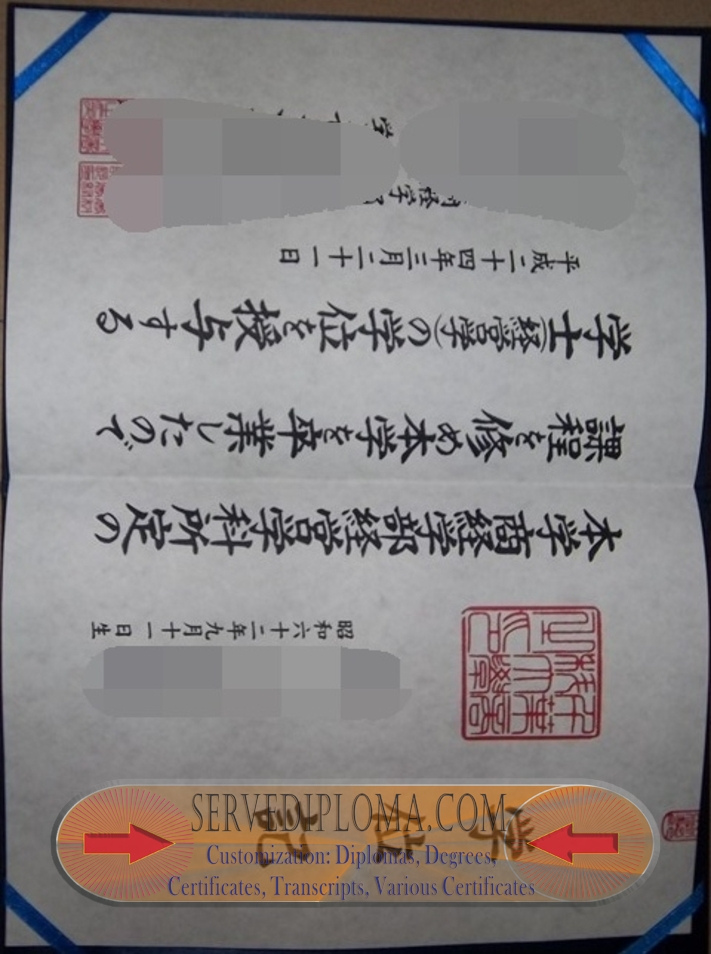 学位記
昭和六十二年九月十一日生
本学商経学部経営学科所定の
課程を修め本学を卒業したので
学士(経営学)の学位を授与する
平成二十四年三月二十一日
SERVEDIPLOMA.COM
Customization: Diplomas, Degrees,
Certificates, Transcripts, Various Certificates